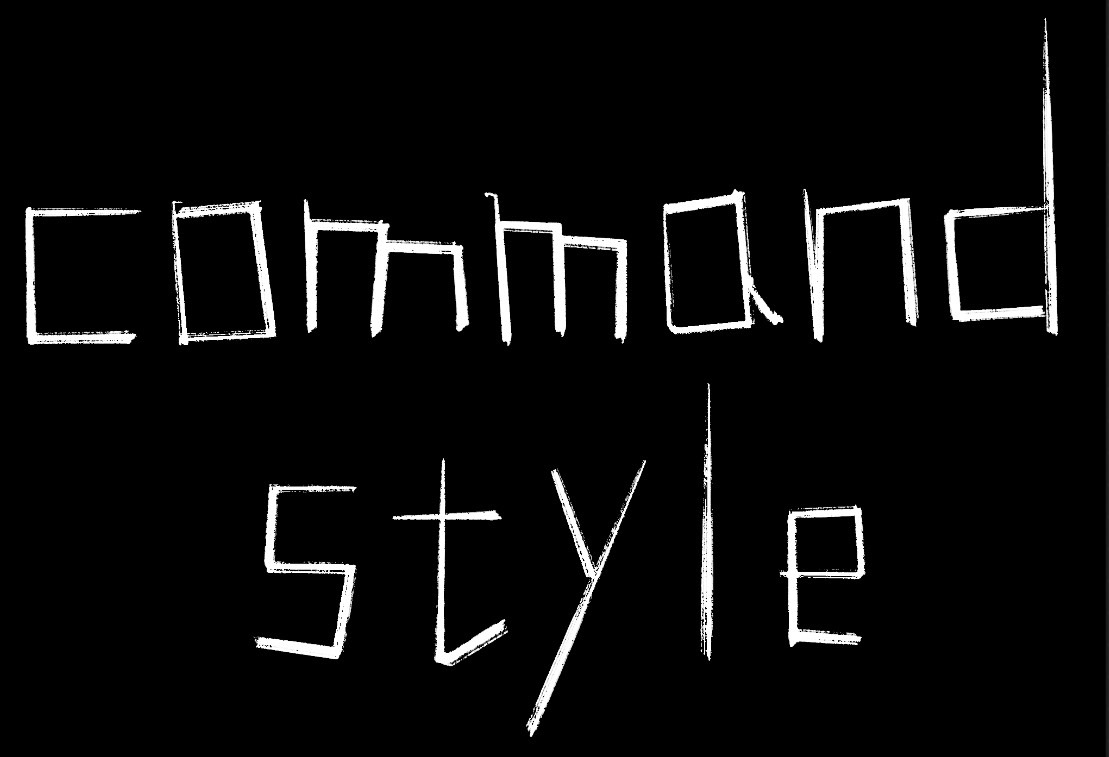 command
style